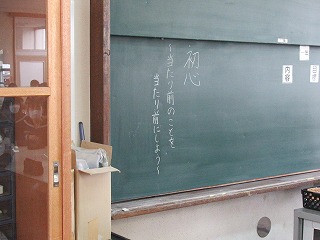 初心
～当たり前のことを
当たり前にしよう～
内容